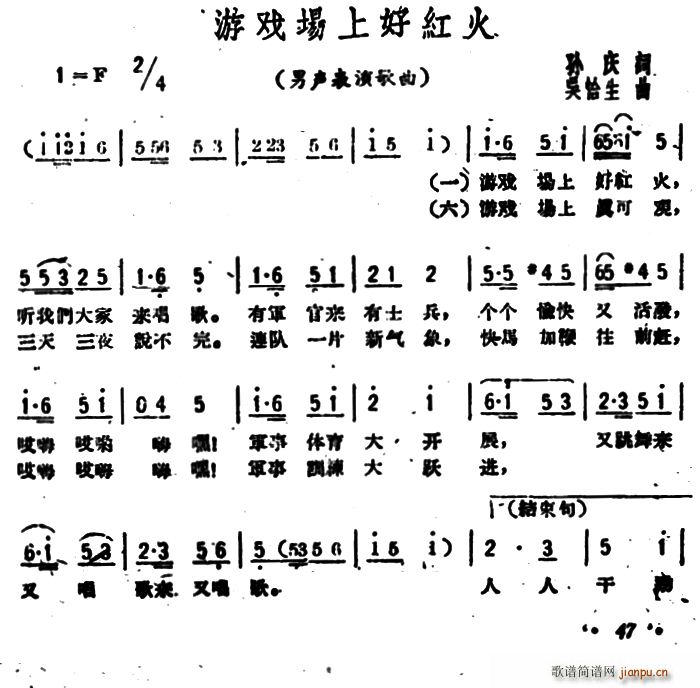 游戏場上好紅火
1=F 2/4
(男声表演歌曲)
孙庆詞
吳怡生曲
(i i2 i 6 | 5 56 5 3 | 2 23 5 6 | i 5 i) | i·6 5 i | 65 5i 5 |
(一)游戏 場上 好紅 火,
(六)游戏 場上 真可 观,
5 5 3 2 5 | 1·6 5· | 1·6 5 1 | 2 1 2 | 5·5 #4 5 | 65 #4 5 |
听我們大家 来唱 歌。 有軍 官来 有士 兵, 个个 愉快 又 活潑,
三天 三夜 說不 完。 連队 一片 新气 象, 快馬 加鞭 往 前赶,
i·6 5 i | 0 4 5 | i·6 5 i | 2 i | 6·i 5 3 | 2·3 5 i |
哎嗨 哎喲 嗨 嘿! 軍事 体育 大 开 展, 又跳舞来
哎嗨 哎嗨 嗨 嘿! 軍事 訓練 大 跃 进,
6·i 5 3 | 2·3 5 6 | 5 (53 5 6 | i 5 i) | 2 · 3 | 5 i |
(結束句)
又 唱 歌来 又唱 歌。 人 人 干
47
歌谱简谱网 jianpu.cn